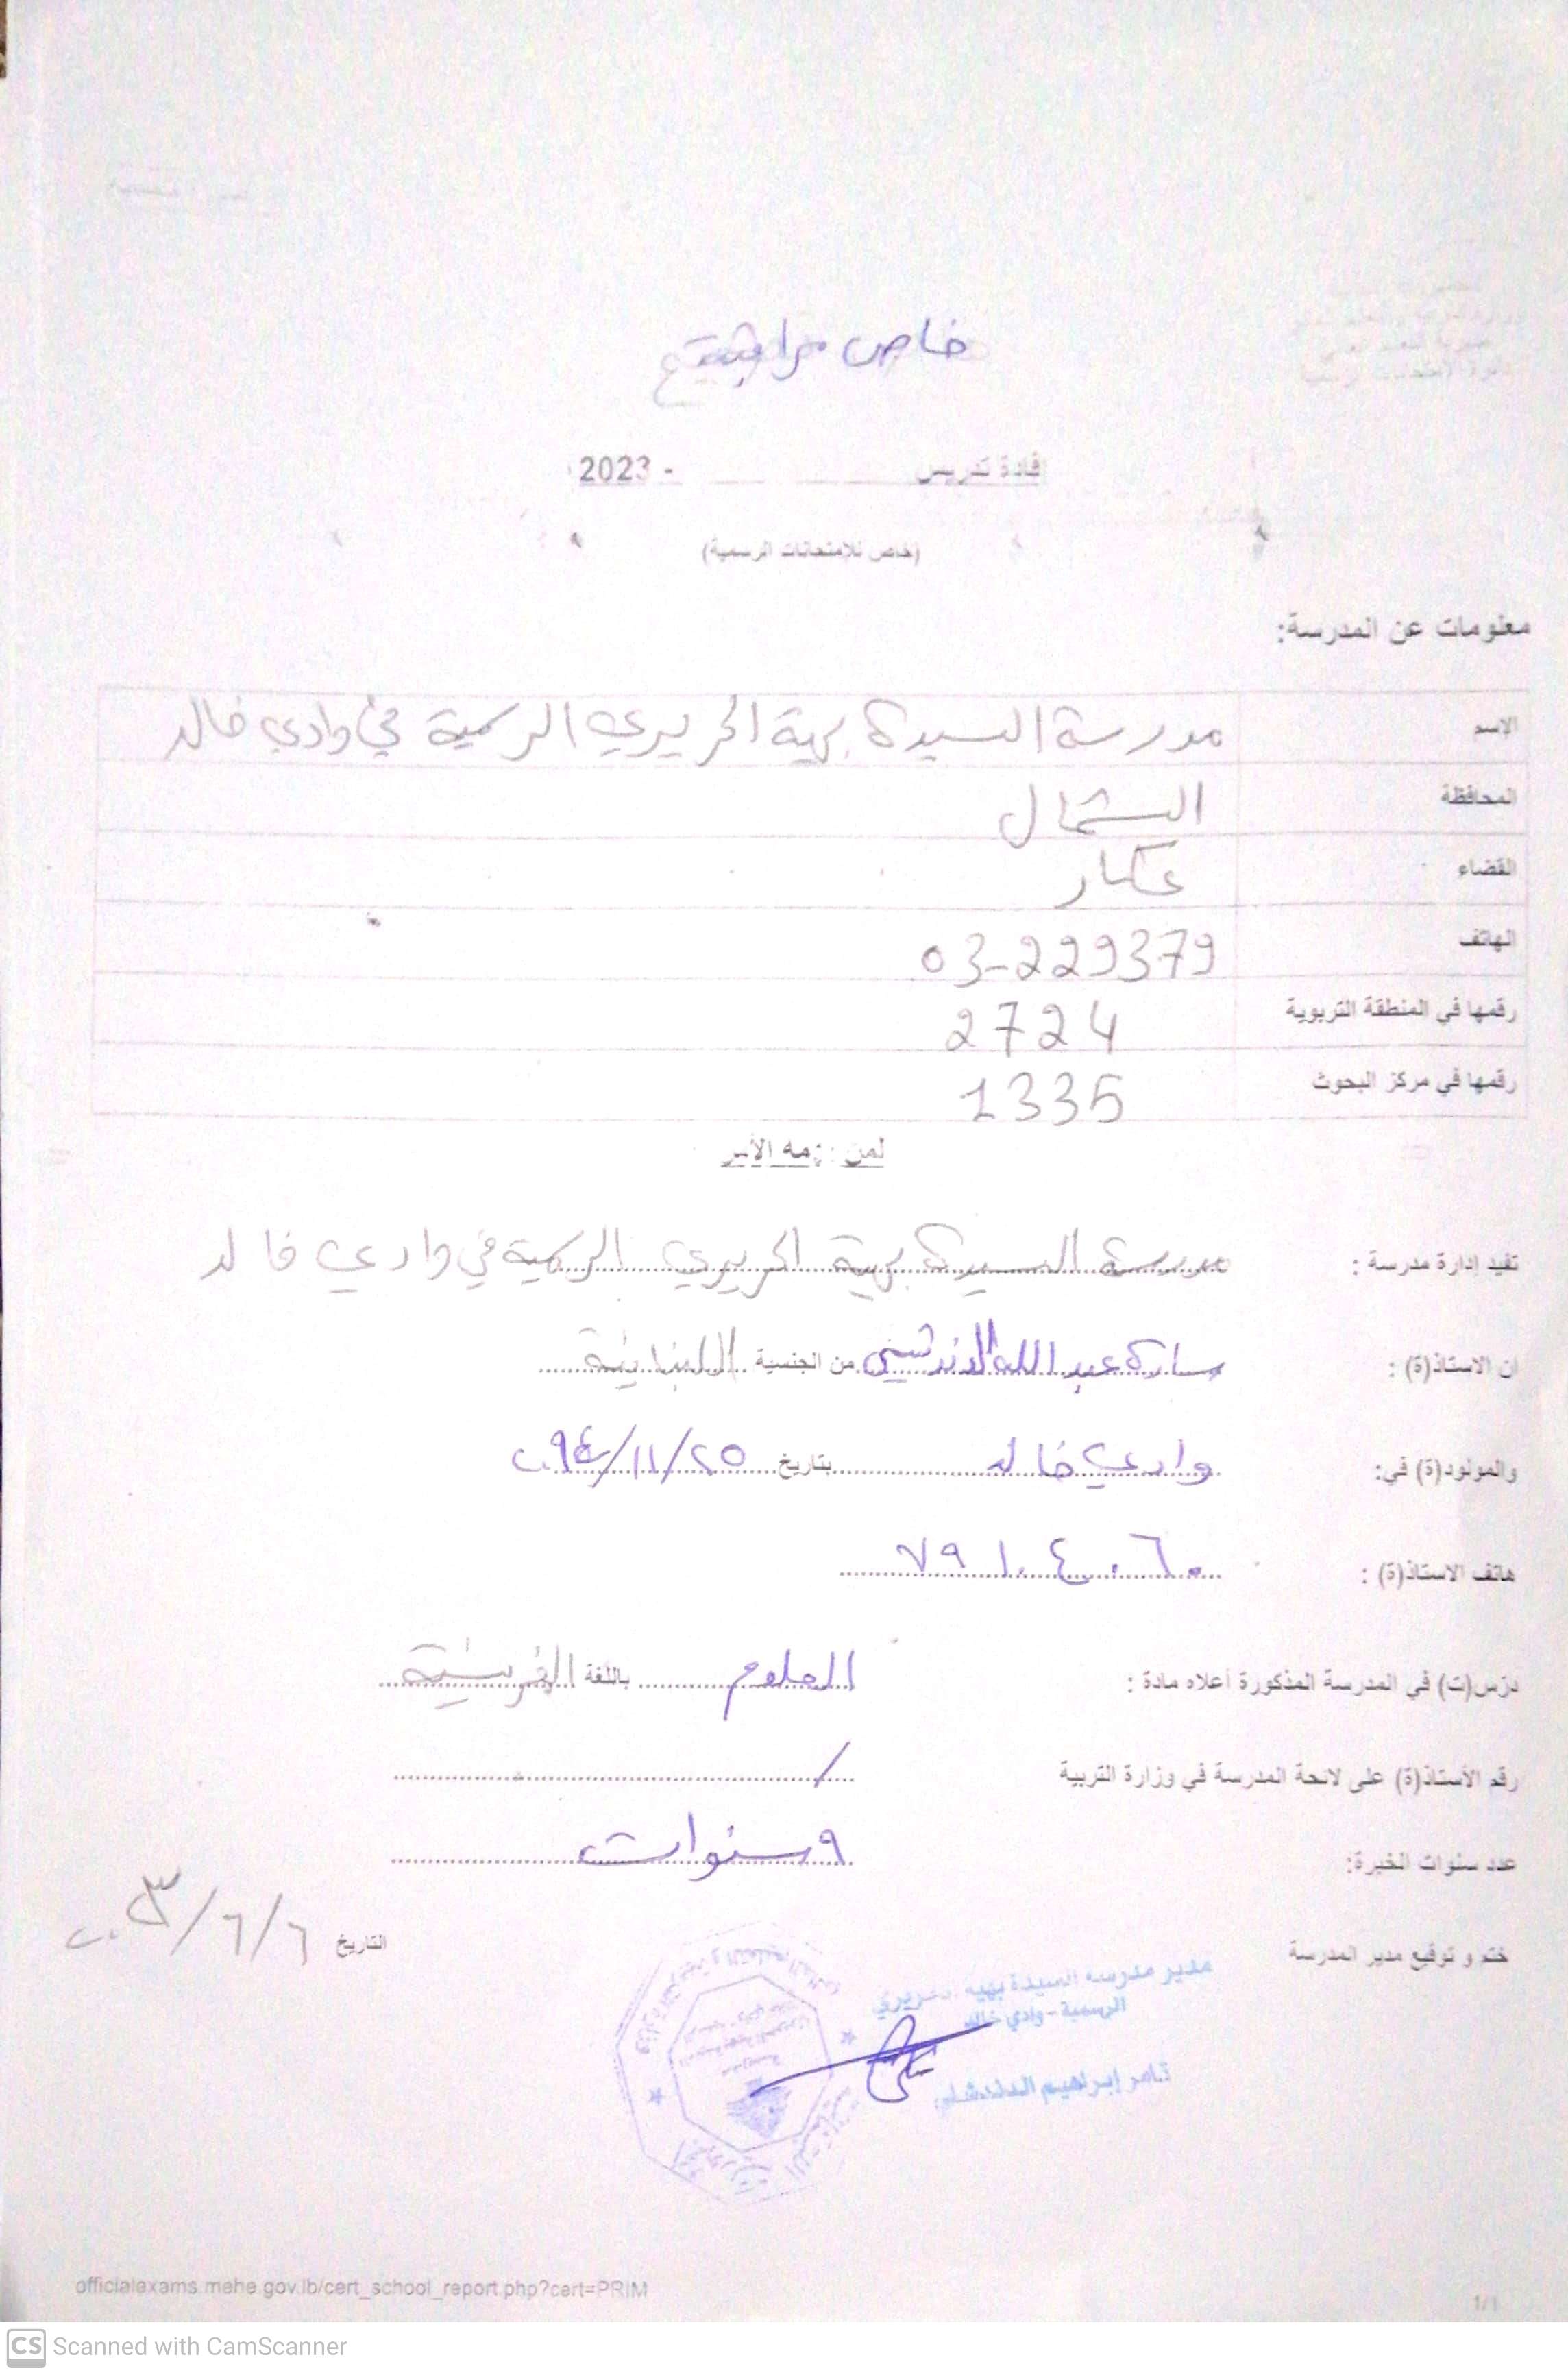 خاص مراقبة
افادة تدريس - 2023
(خاص للامتحانات الرسمية)
معلومات عن المدرسة:
الاسم مدرسة السيدة بهية الحريري الرسمية في وادي خالد
المحافظة الشمال
القضاء عكار
الهاتف 03-229379
رقمها في المنطقة التربوية 2724
رقمها في مركز البحوث 1335
لمن يهمه الأمر
تفيد إدارة مدرسة : مدرسة السيدة بهية الحريري الرسمية في وادي خالد
ان الاستاذ(ة) : سارة عبد الله الدندشي من الجنسية اللبنانية
والمولود(ة) في: وادي خالد بتاريخ ٢٥/١١/
هاتف الاستاذ(ة) : ٧٩١٠٤٠٦٠
درّس(ت) في المدرسة المذكورة أعلاه مادة : العلوم باللغة الفرنسية
رقم الأستاذ(ة) على لائحة المدرسة في وزارة التربية /
عدد سنوات الخبرة: ٩ سنوات
ختم و توقيع مدير المدرسة التاريخ ٦/٦/٢٠٣
مدير مدرسة السيدة بهية الحريري
الرسمية - وادي خالد
ثامر إبراهيم الدندشلي
officialexams.mehe.gov.lb/cert_school_report.php?cert=PRIM
1/1
CS Scanned with CamScanner